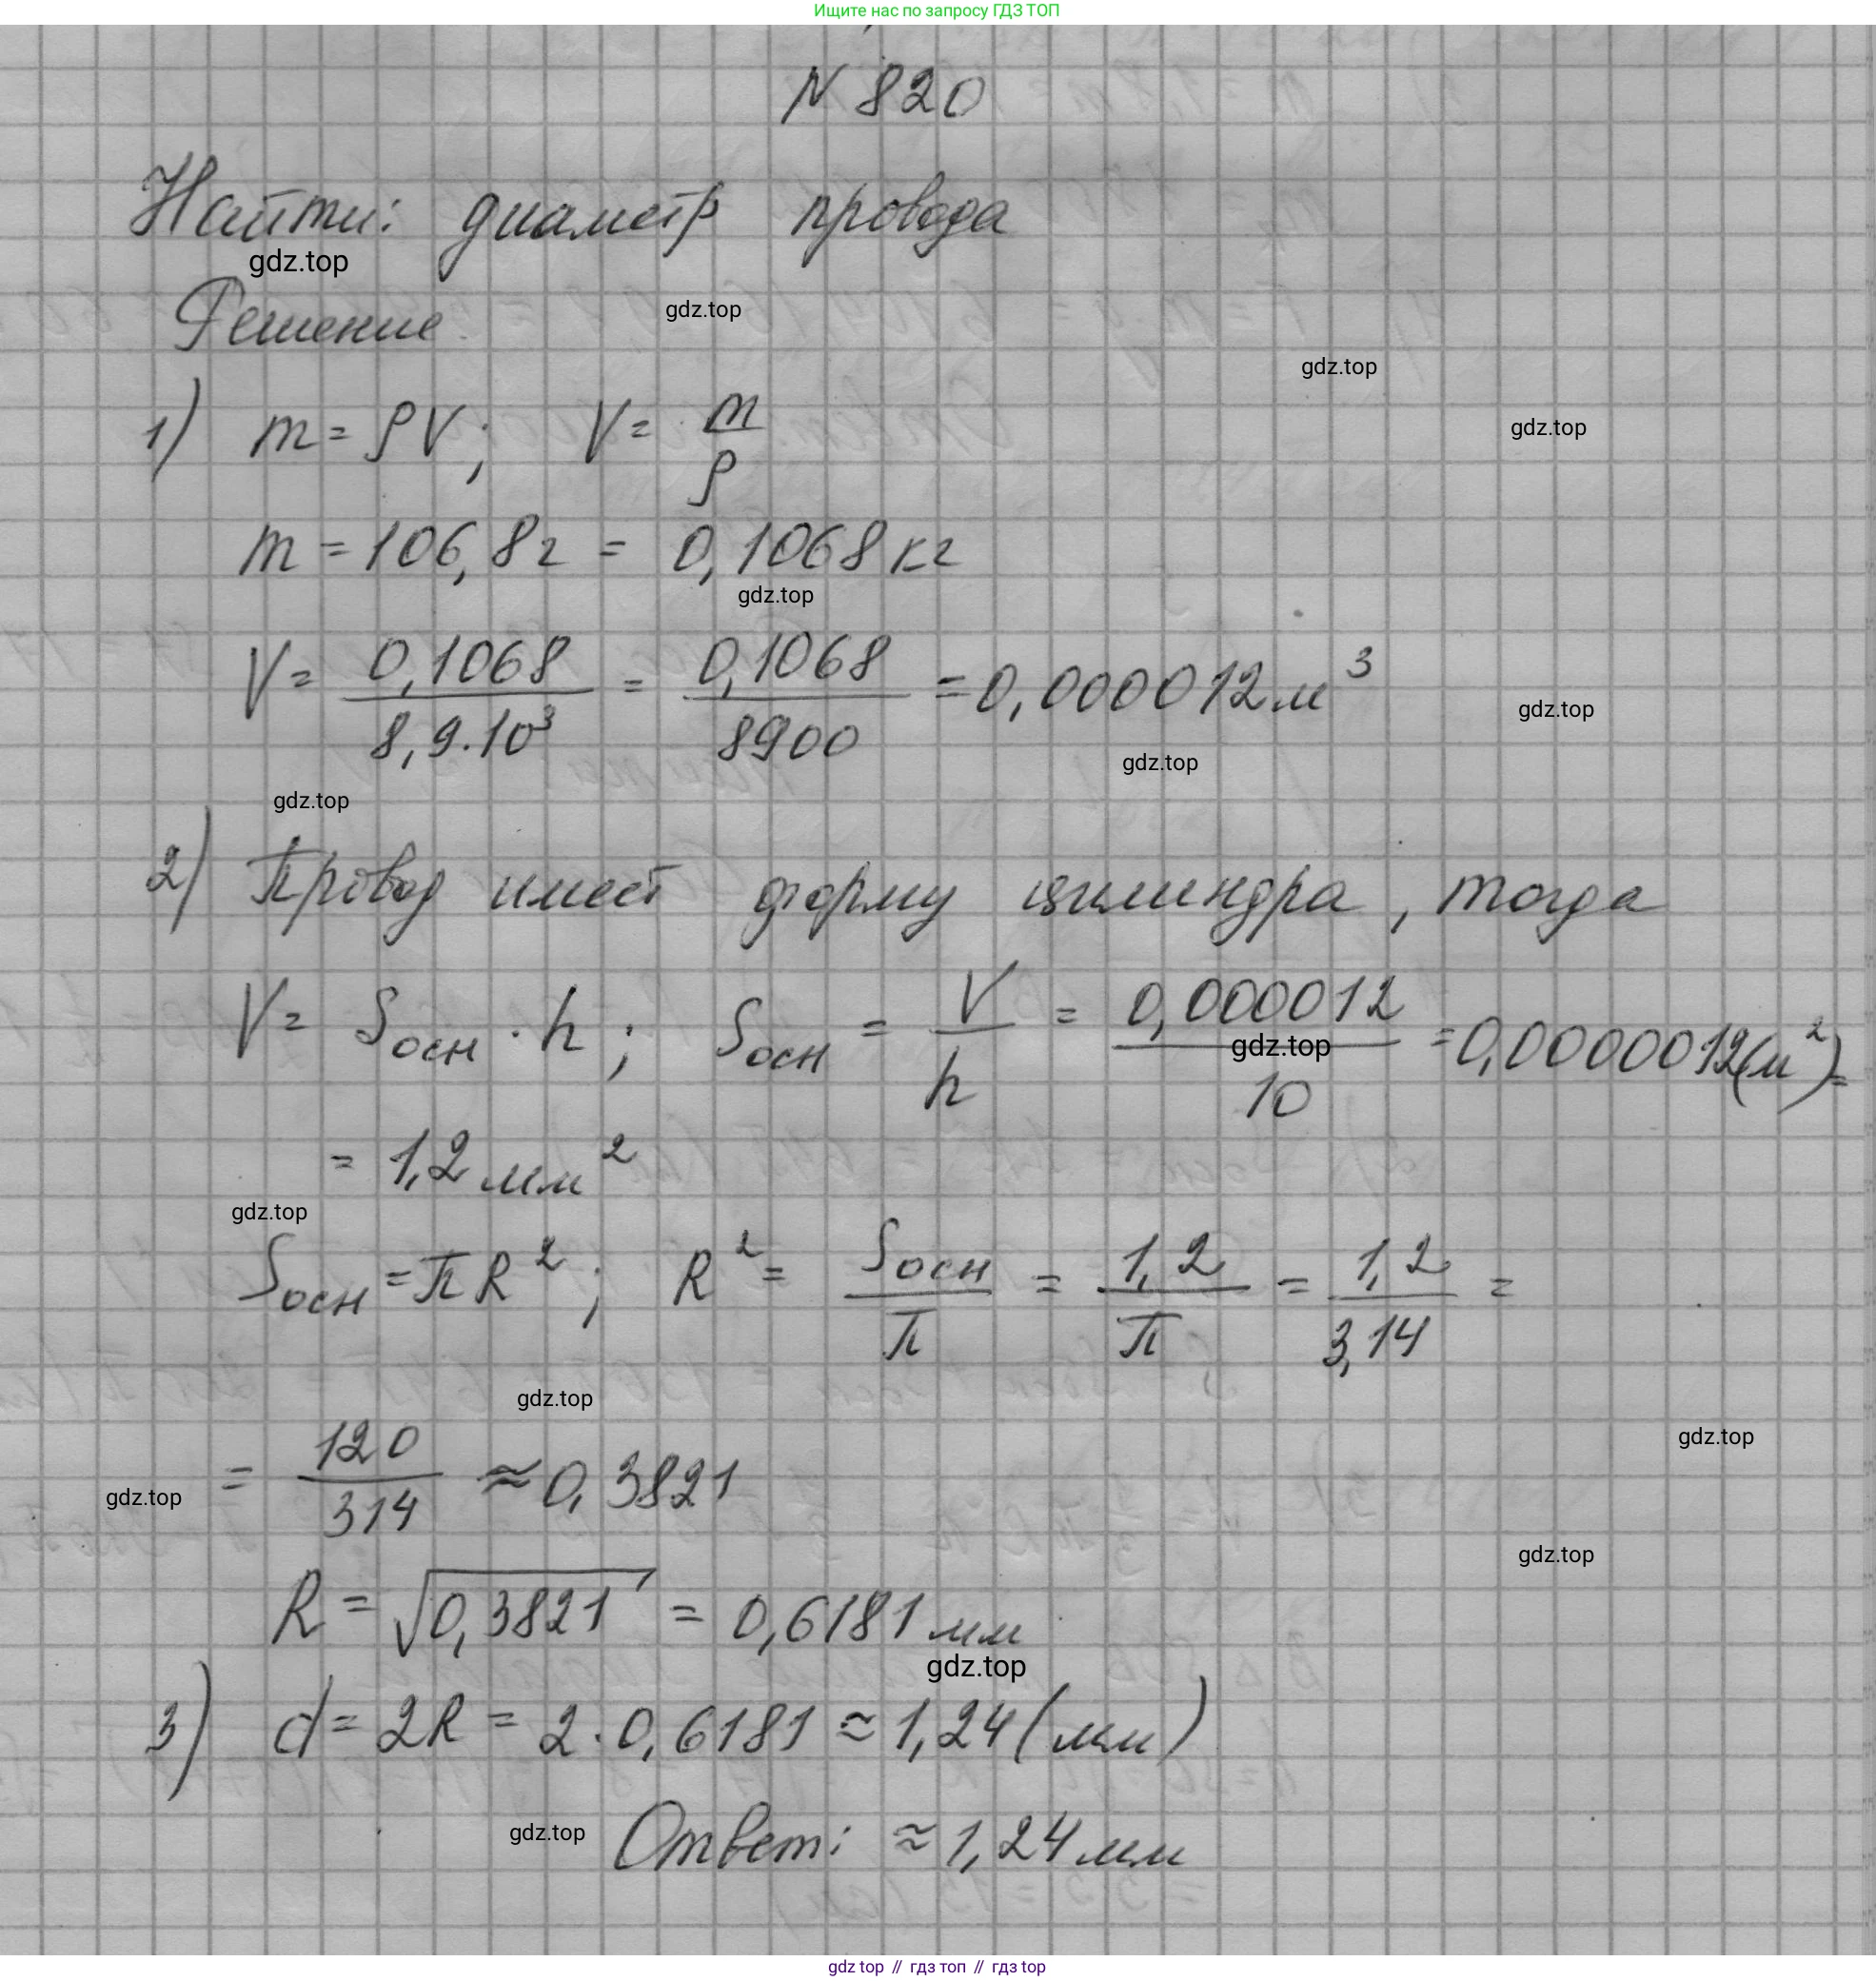 Ищите нас по запросу ГДЗ ТОП
N 820
Найти: диаметр провода
gdz.top
Решение
gdz.top
gdz.top
1) m = ρV; V = m/ρ
gdz.top
m = 106,8г = 0,1068 кг
gdz.top
V = 0,1068/8,9·10³ = 0,1068/8900 = 0,000012 м³
gdz.top
gdz.top
gdz.top
2) Провод имеет форму цилиндра, тогда
V = Sосн · h; Sосн = V/h = 0,000012/10 = 0,0000012(м²) =
gdz.top
= 1,2 мм²
gdz.top
Sосн = πR²; R² = Sосн/π = 1,2/π = 1,2/3,14 =
gdz.top
gdz.top
= 120/314 ≈ 0,3821
gdz.top
gdz.top
R = √0,3821 = 0,6181 мм
gdz.top
3) d = 2R = 2·0,6181 ≈ 1,24 (мм)
gdz.top
Ответ: ≈ 1,24 мм
gdz top // гдз топ // гдз top